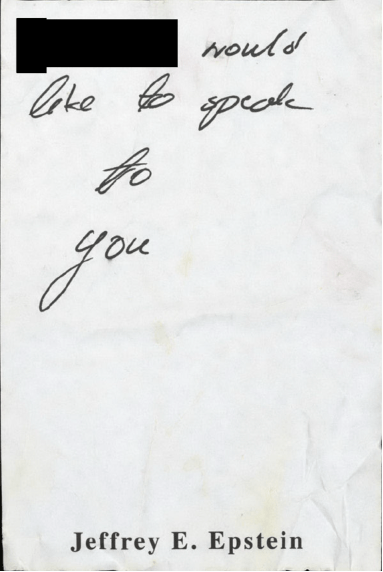 would
like to speak
to
you
Jeffrey E. Epstein